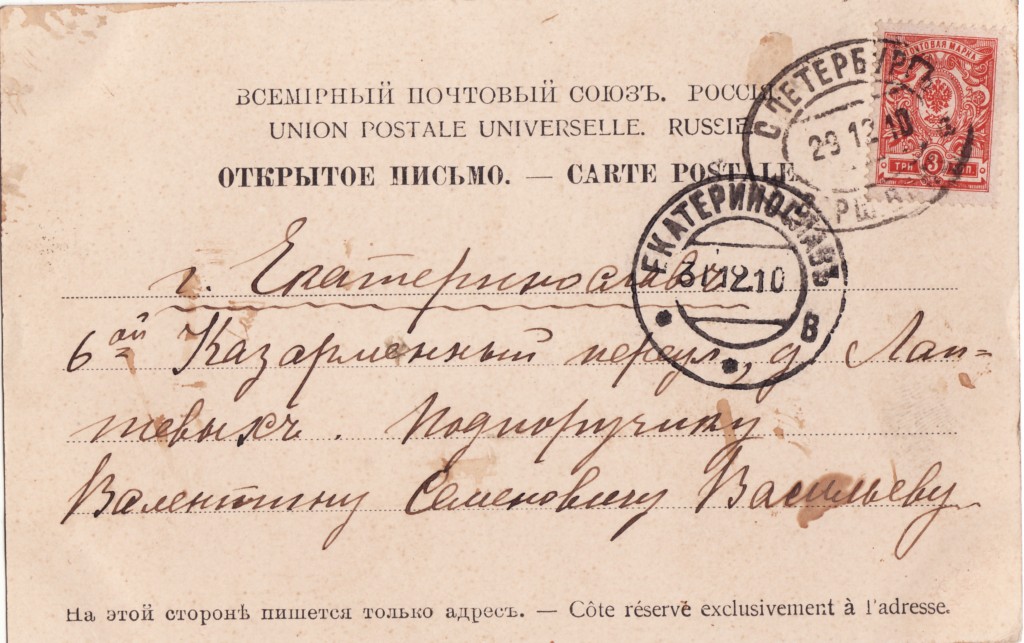 ВСЕМІРНЫЙ ПОЧТОВЫЙ СОЮЗЪ. РОССІЯ
UNION POSTALE UNIVERSELLE. RUSSIE
ОТКРЫТОЕ ПИСЬМО. — CARTE POSTALE
ПОЧТОВАЯ МАРКА
ТРИ 3 КОП.
С ПЕТЕРБУРГЪ
29 12 10
ЕКАТЕРИНОСЛАВЪ
31 12 10
В
г. Екатеринославъ
6ой Казарменный переул, д. Лап-
тевыхъ. Подпоручику
Валентину Семеновичу Васильеву
На этой сторонѣ пишется только адресъ. — Côte réservé exclusivement à l'adresse.